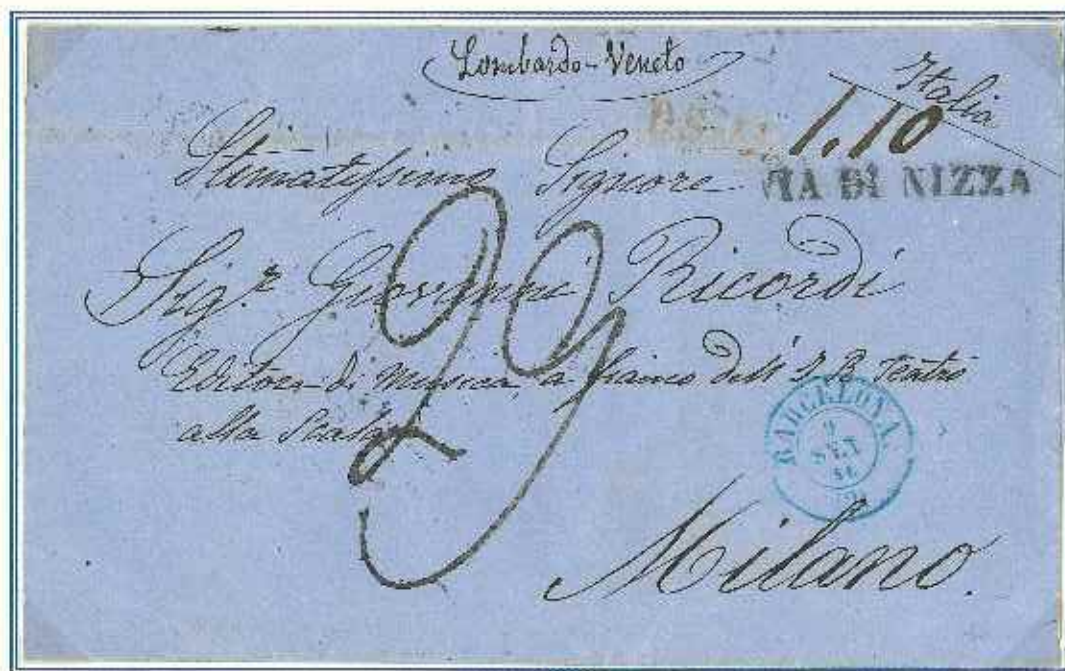 Lombardo-Veneto
Italia
1.10
VIA DI NIZZA
Stimatissimo Signore
Sig.r Giovanni Ricordi
Editore di Musica, a fianco dell' I. R. Teatro
alla Scala
BARCELONA
Milano.